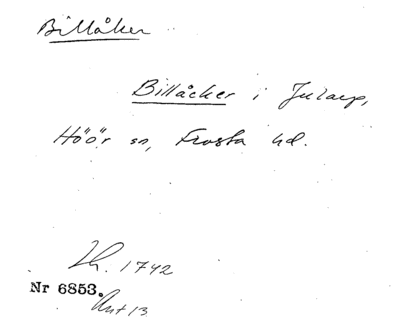 Billåker
Billåcker i Jularp,
Höör sn, Frosta hd.
Lh. 1742
Nr 6853.
Ant 13